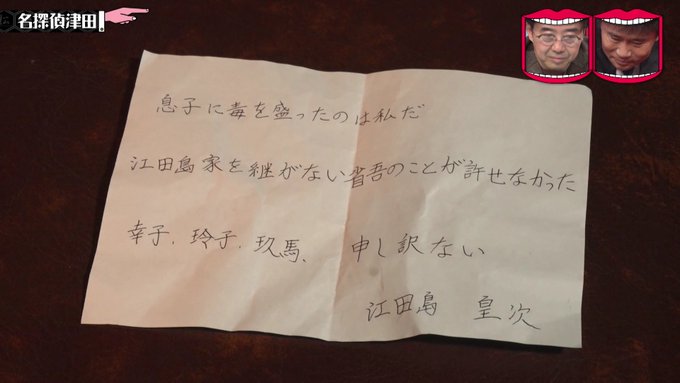 名探偵津田
息子に毒を盛ったのは私だ
江田島家を継がない省吾のことが許せなかった
幸子、玲子、玖馬、 申し訳ない
江田島 皇次